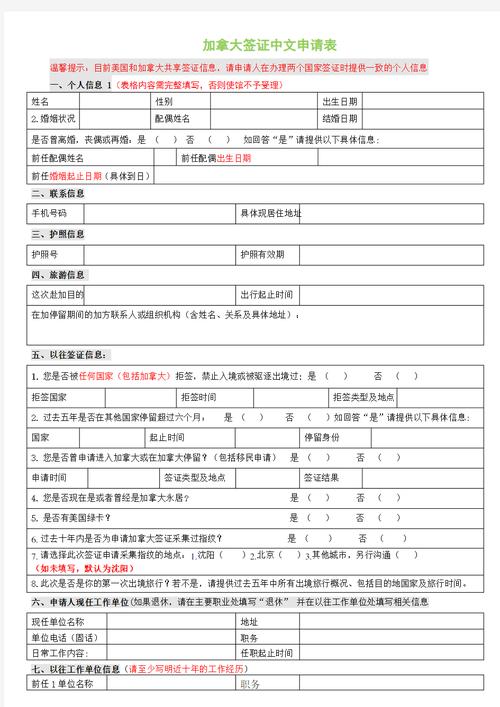 加拿大签证中文申请表
温馨提示：目前美国和加拿大共享签证信息，请申请人在办理两个国家签证时提供一致的个人信息
一、个人信息 1（表格内容需完整填写，否则使馆不予受理）
姓名 性别 出生日期
2.婚姻状况 配偶姓名 结婚日期
是否曾离婚，丧偶或再婚：是 （ ） 否 （ ） 如回答“是”请提供以下具体信息：
前任配偶姓名 前任配偶出生日期
前任婚姻起止日期（具体到日）
二、联系信息
手机号码 具体现居住地址
三、护照信息
护照号 护照有效期
四、旅游信息
这次赴加目的 出行起止时间
在加停留期间的加方联系人或组织机构（含姓名、关系及具体地址）：
五、以往签证信息：
1. 您是否被任何国家（包括加拿大）拒签，禁止入境或被驱逐出境过：是 （ ） 否 （ ）
拒签国家 拒签时间 拒签类型及地点
2. 过去五年是否在其他国家停留超过六个月： 是 （ ） 否 （ ）如回答“是”请提供以下具体信息：
国家 起止时间 停留身份
3. 您是否曾申请进入加拿大或在加拿大停留？（包括移民申请） 是 （ ） 否 （ ）
申请时间 签证类型及地点 签证结果
4. 您是否现在是或者曾经是加拿大永居？ 是 （ ） 否 （ ）
5. 是否有美国绿卡？ 是 （ ） 否 （ ）
6.过去十年内是否为申请加拿大签证采集过指纹？ 是 （ ） 否 （ ）
7.请选择此次签证申请采集指纹的地点：1.沈阳（ ）2.北京（ ）3.其他城市，另行沟通（ ）
（如未填写，默认为沈阳）
8.此次是否是你的第一次出境旅行？若不是，请提供过去五年中所有出境旅行概况、包括目的地国家及旅行时间。
六、申请人现任工作单位(如果退休，请在主要职业处填写“退休” 并在以往工作单位处填写相关信息
现任单位名称 地址
单位电话（固话） 职务
日常工作内容： 任职起止时间
七、以往工作单位信息（请至少写明近十年的工作经历）
前任1单位名称 职务